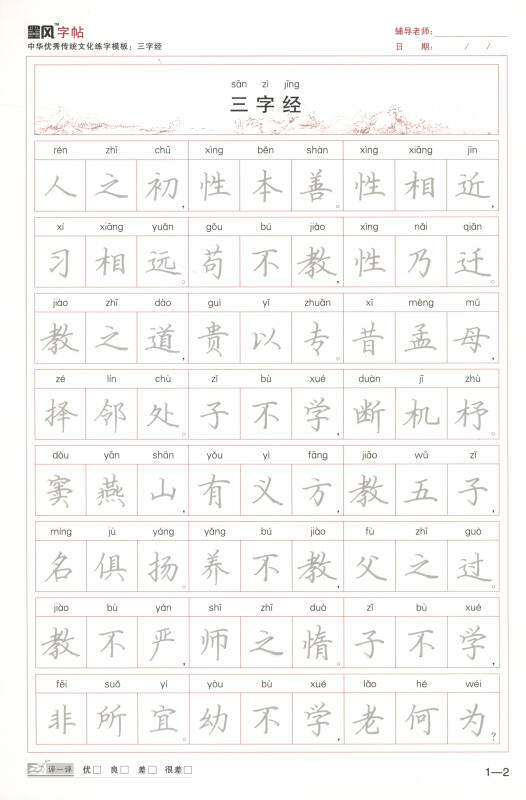 墨风™字帖 辅导老师:
中华优秀传统文化练字模板:三字经 日 期: / /
sān zì jīng
三字经
rén zhī chū xìng běn shàn xìng xiāng jìn
人之初,性本善。性相近,
xí xiāng yuǎn gǒu bú jiào xìng nǎi qiān
习相远。苟不教,性乃迁。
jiào zhī dào guì yǐ zhuān xī mèng mǔ
教之道,贵以专。昔孟母,
zé lín chù zǐ bù xué duàn jī zhù
择邻处。子不学,断机杼。
dòu yān shān yǒu yì fāng jiāo wǔ zǐ
窦燕山,有义方,教五子,
míng jù yáng yǎng bú jiào fù zhī guò
名俱扬。养不教,父之过。
jiào bù yán shī zhī duò zǐ bù xué
教不严,师之惰。子不学,
fēi suǒ yí yòu bù xué lǎo hé wéi
非所宜。幼不学,老何为?
评一评 优□ 良□ 差□ 很差□ 1—2